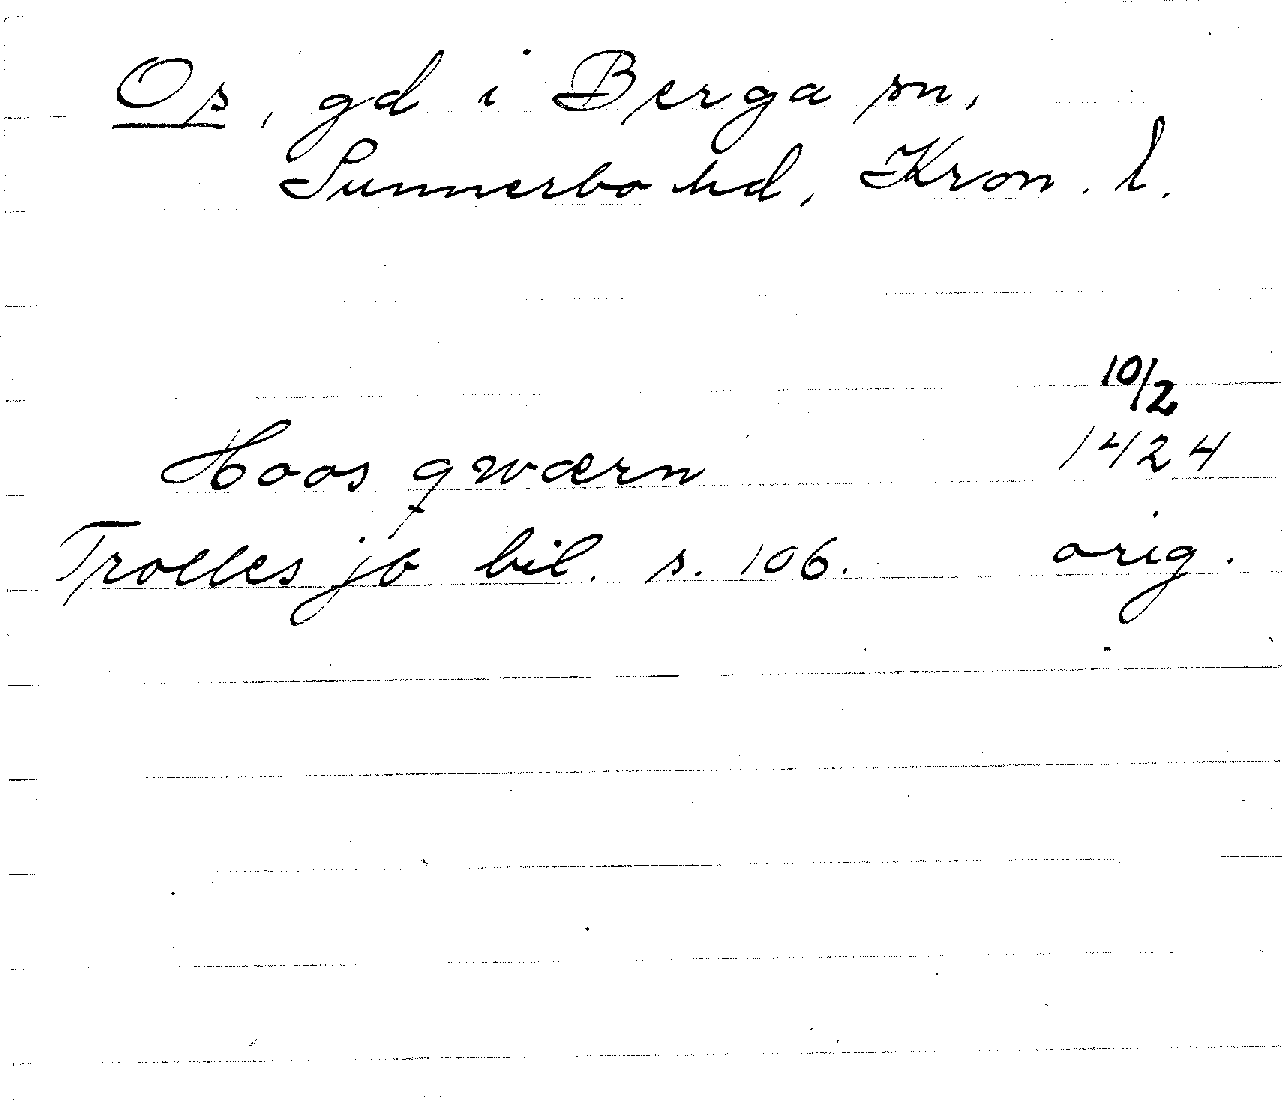 Os, gd i Berga sn,
Sunnerbo hd, Kron. l.
10/2
Hoos qwærn 1424
Trolles jb bil. s. 106. orig.